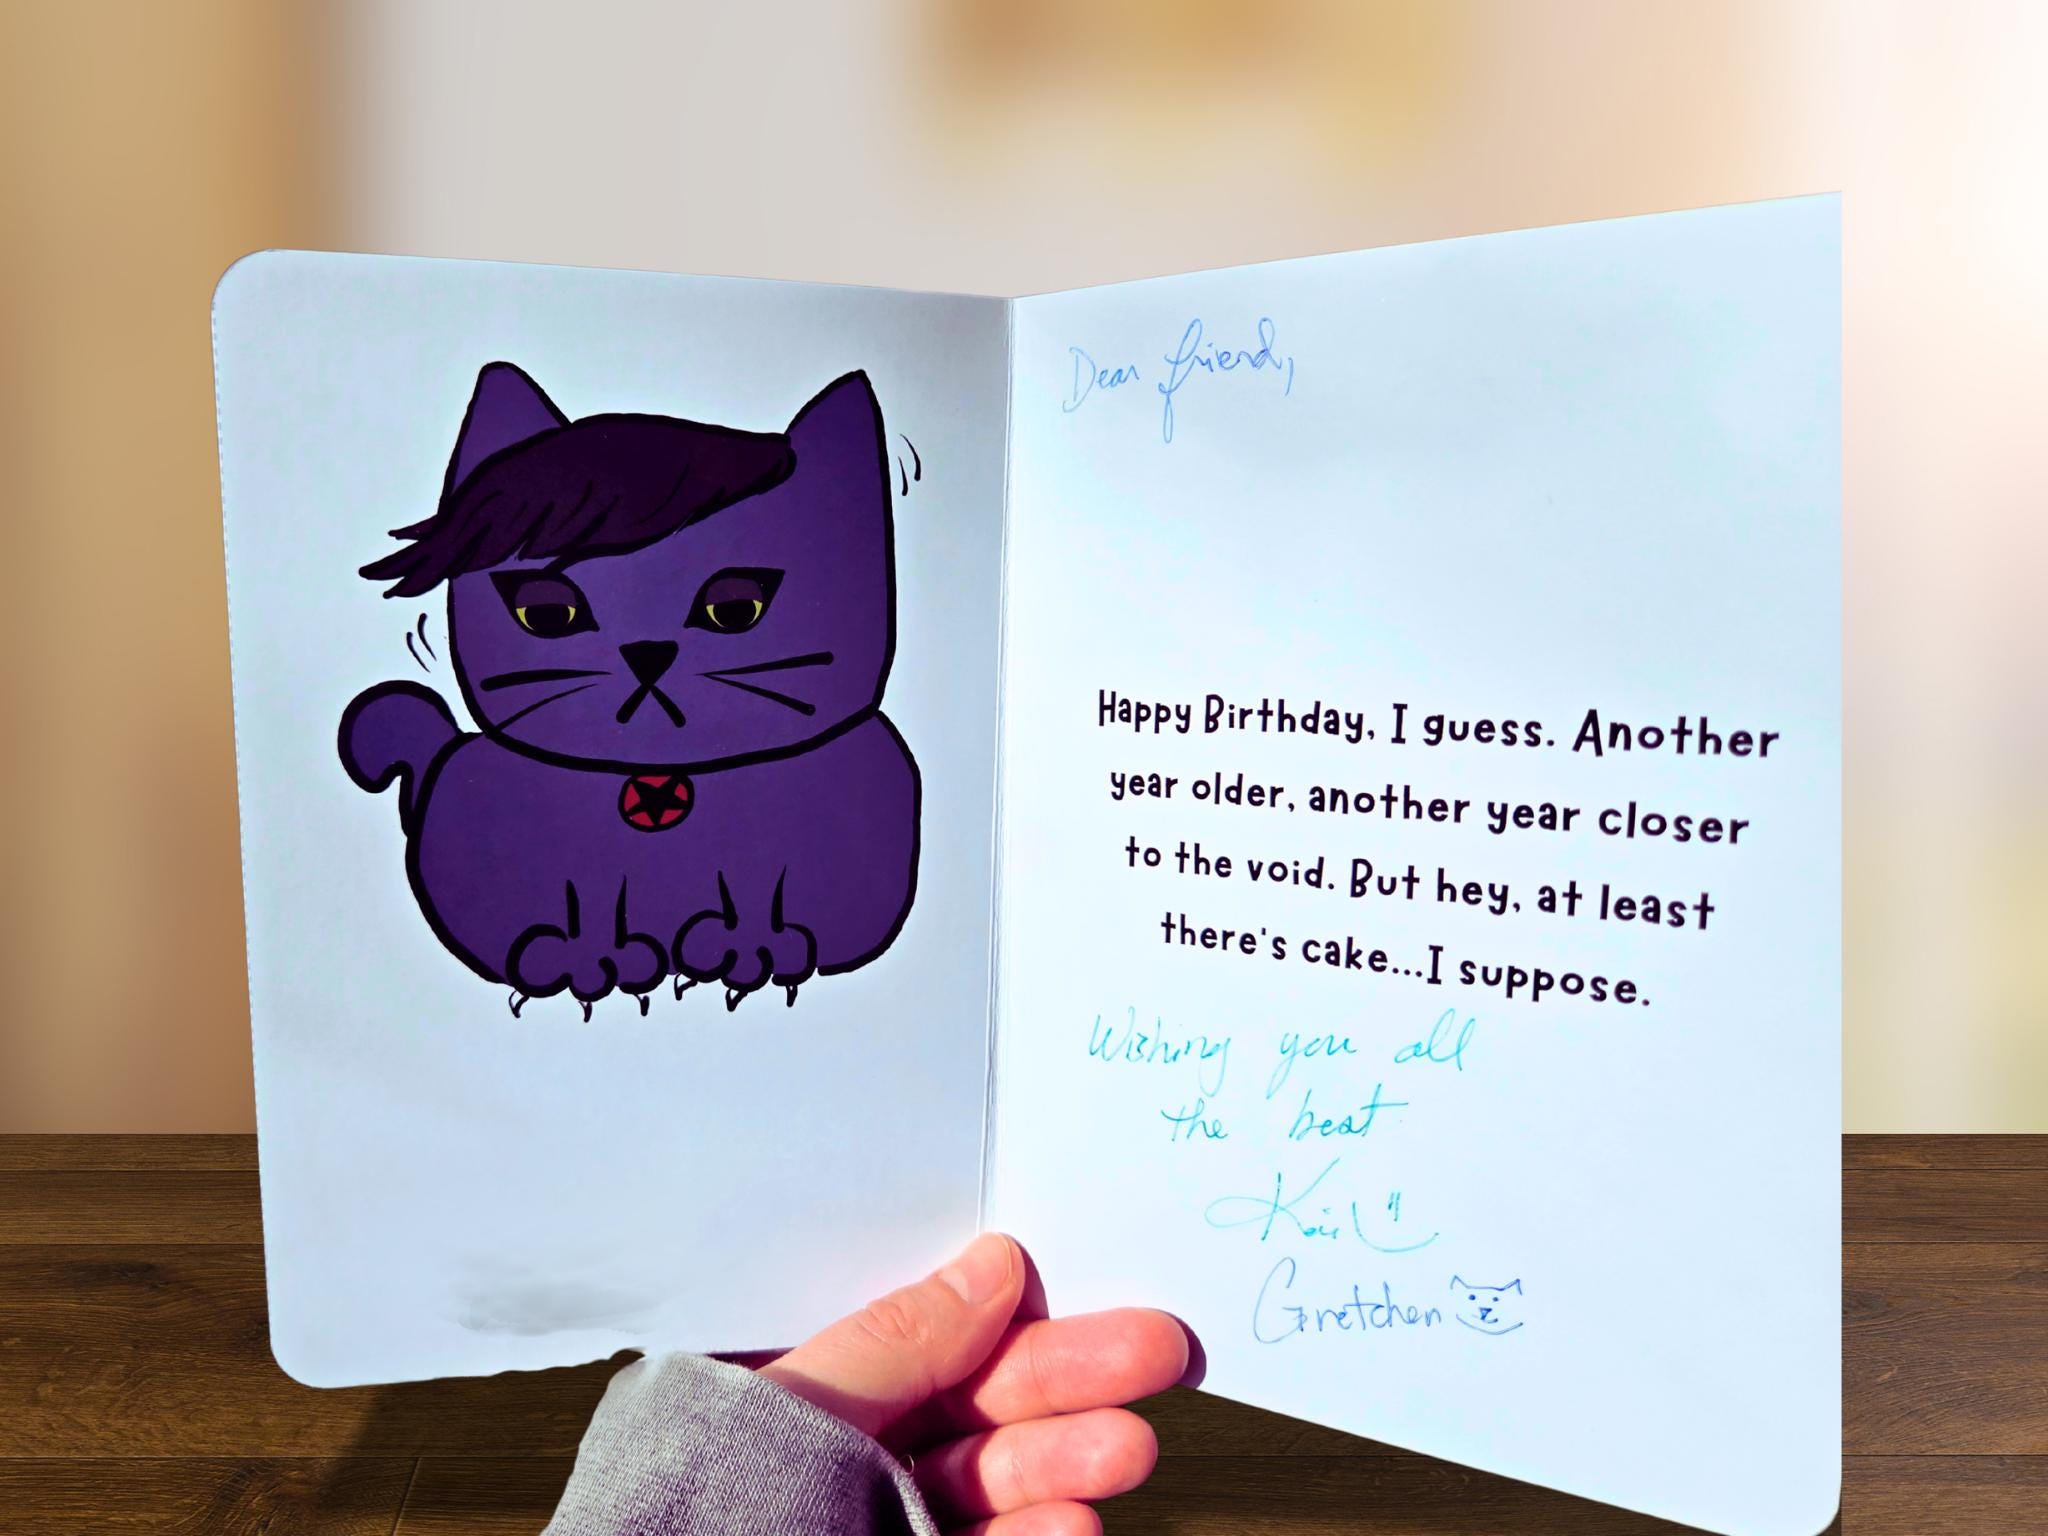 Dear friend,
Happy Birthday, I guess. Another
year older, another year closer
to the void. But hey, at least
there's cake...I suppose.
Wishing you all
the best
Gretchen